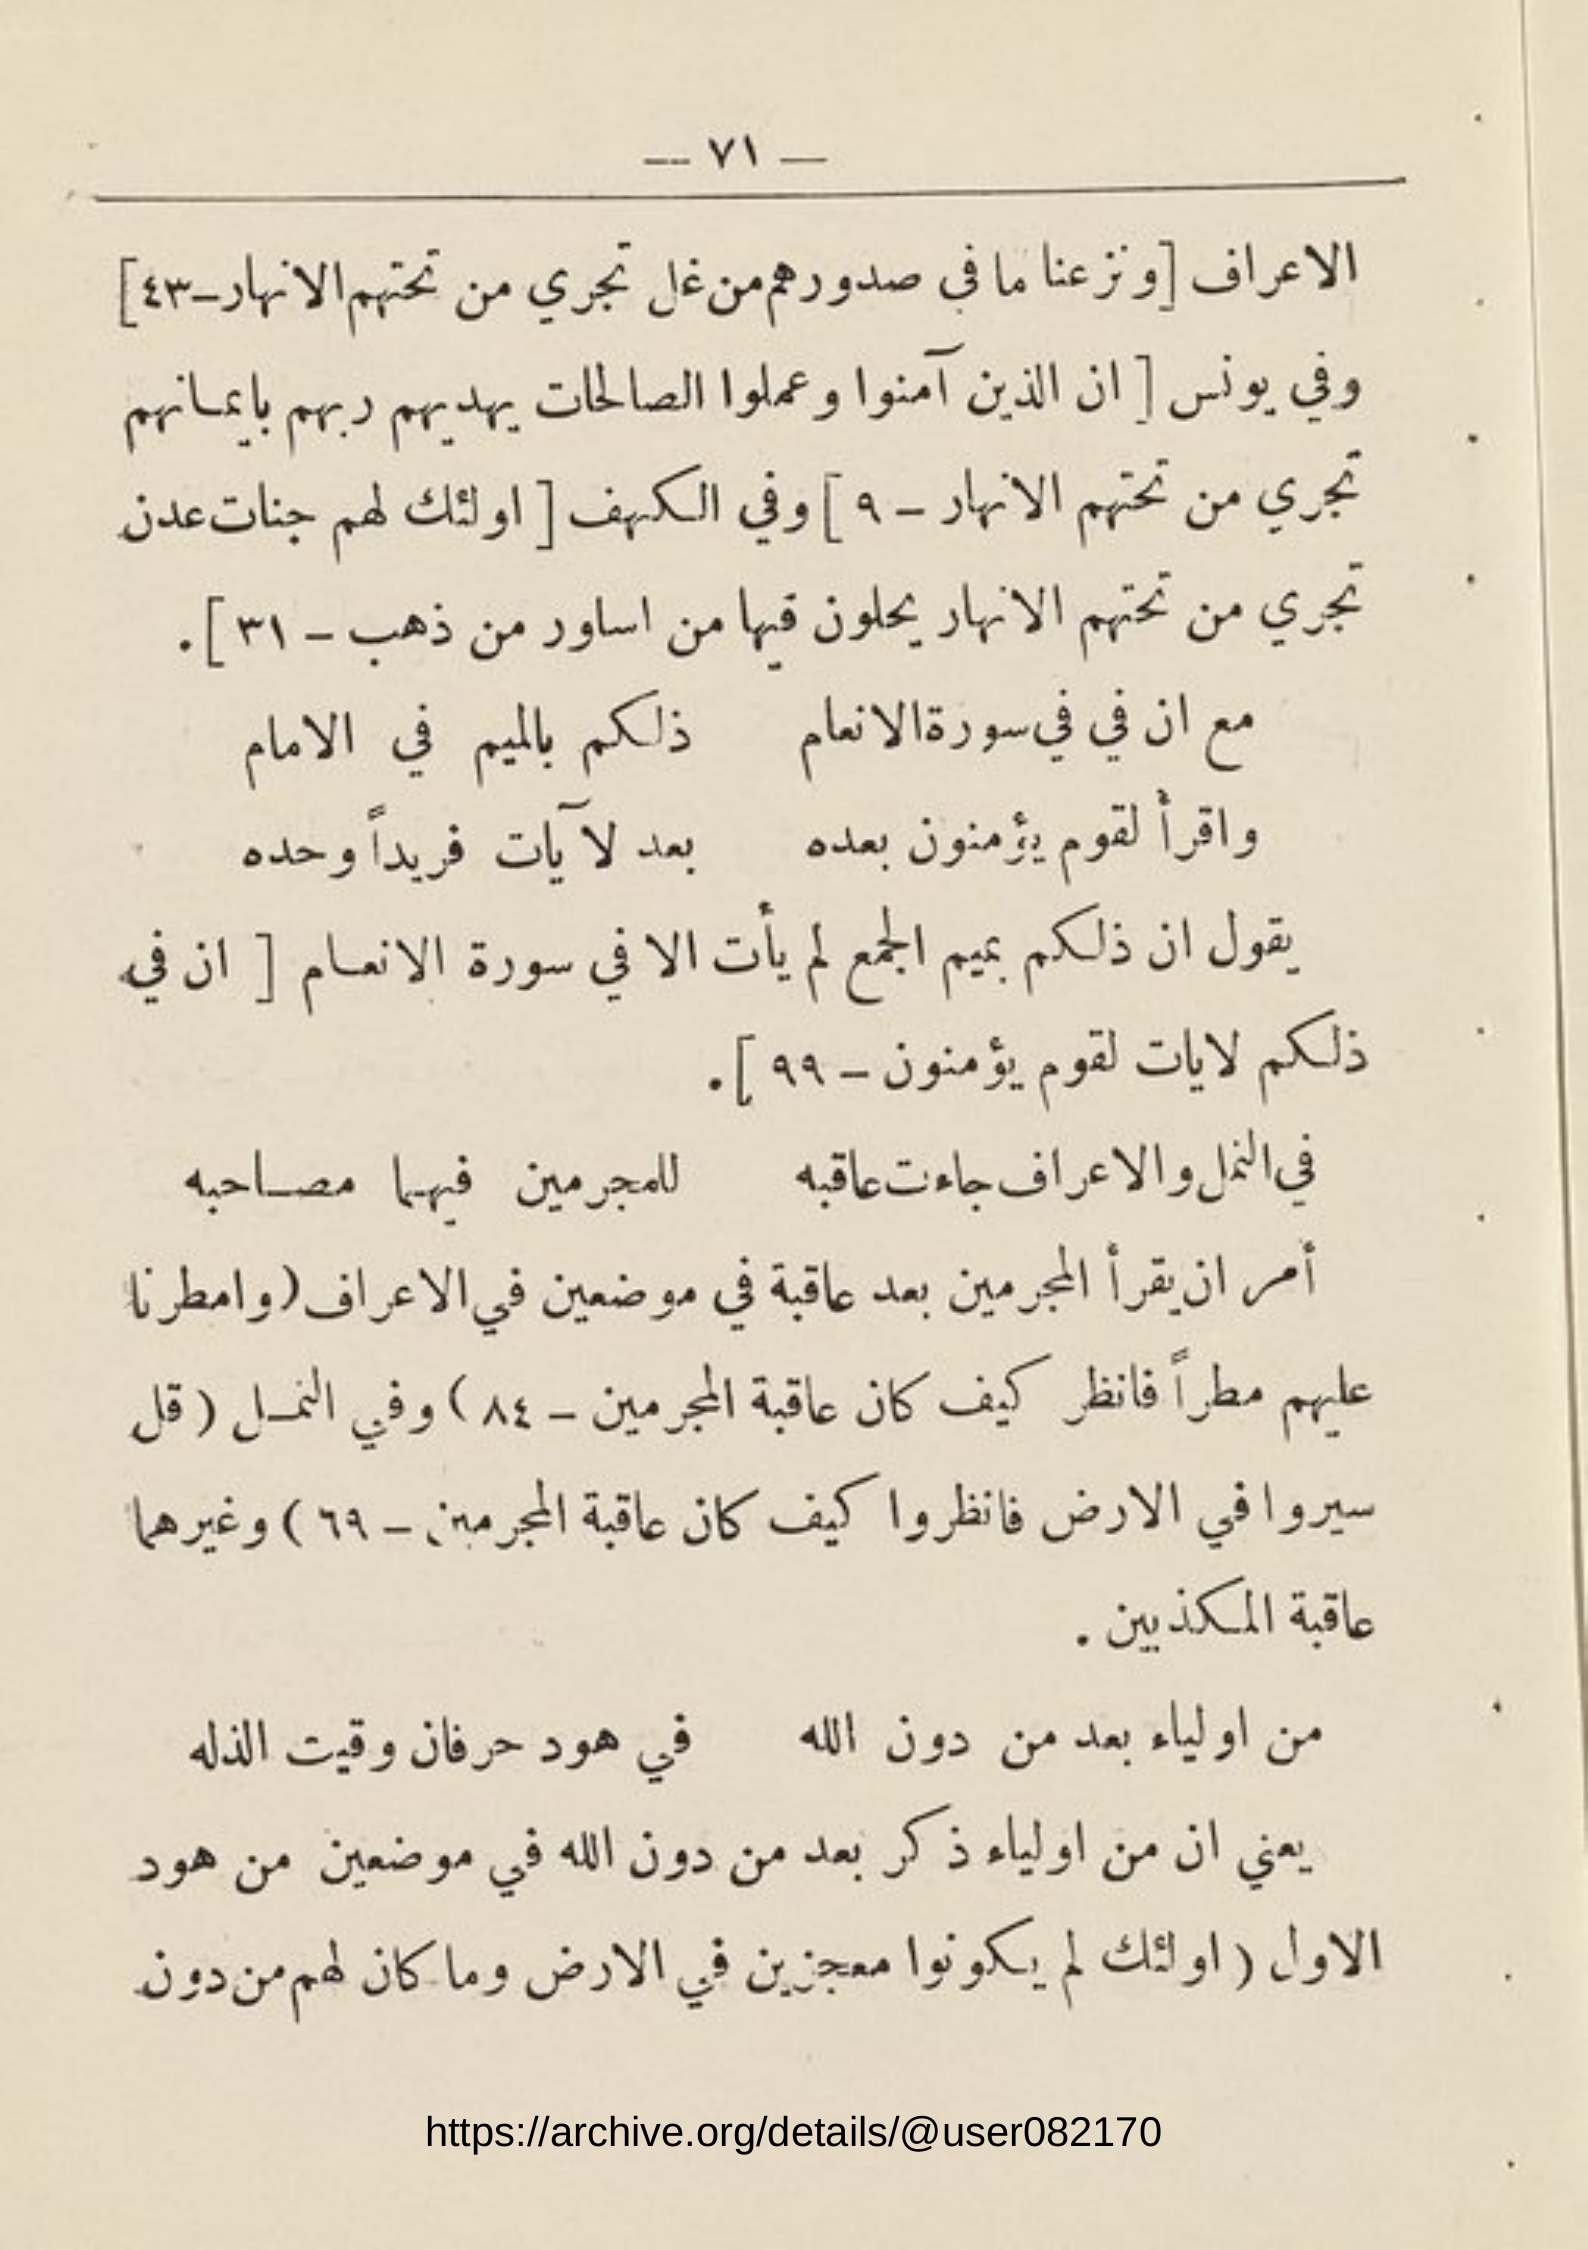 — ٧١ —
الاعراف [ونزعنا ما في صدورهم من غل تجري من تحتهم الانهار–٤٣]
وفي يونس [ ان الذين آمنوا وعملوا الصالحات يهديهم ربهم بايمانهم
تجري من تحتهم الانهار – ٩ ] وفي الكهف [ اولئك لهم جنات عدن
تجري من تحتهم الانهار يحلون فيها من اساور من ذهب – ٣١ ].
مع ان في في سورة الانعام ذلكم بالميم في الامام
واقرأ لقوم يؤمنون بعده بعد لآيات فريداً وحده
يقول ان ذلكم بميم الجمع لم يأت الا في سورة الانعام [ ان في
ذلكم لايات لقوم يؤمنون – ٩٩ ].
في النمل والاعراف جاءت عاقبه للمجرمين فيهما مصاحبه
أمر ان يقرأ المجرمين بعد عاقبة في موضعين في الاعراف (وامطرنا
عليهم مطراً فانظر كيف كان عاقبة المجرمين – ٨٤) وفي النمل ( قل
سيروا في الارض فانظروا كيف كان عاقبة المجرمين – ٦٩ ) وغيرهما
عاقبة المكذبين .
من اولياء بعد من دون الله في هود حرفان وقيت الذله
يعني ان من اولياء ذكر بعد من دون الله في موضعين من هود
الاول ( اولئك لم يكونوا معجزين في الارض وما كان لهم من دون
https://archive.org/details/@user082170